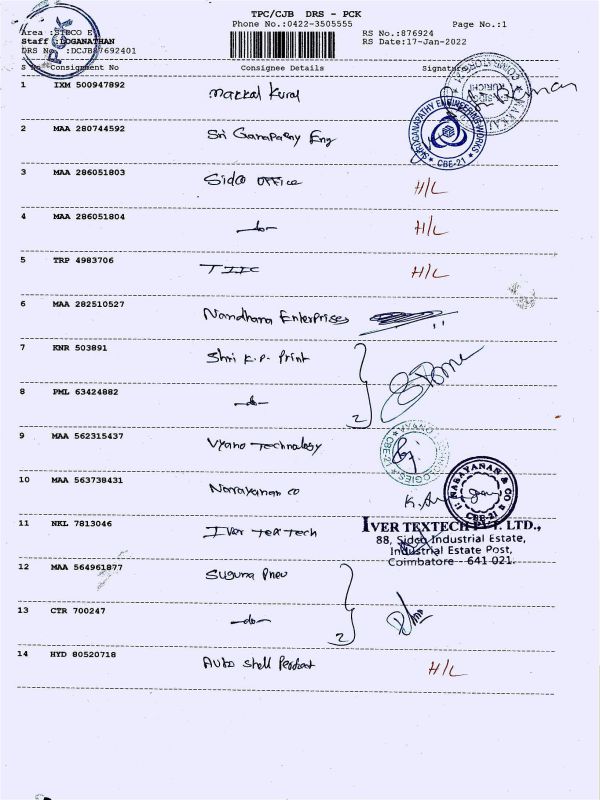 TPC/CJB DRS - PCK
Phone No.:0422-3505555
Page No.:1
Area :SIDCO E
Staff :LOGANATHAN
DRS No :DCJB87692401
RS No.:876924
RS Date:17-Jan-2022
S No Consignment No Consignee Details Signature
1 IXM 500947892 Makkal Kural
2 MAA 280744592 Sri Ganapathy Eng
SRI GANAPATHY ENGINEERING WORKS
CBE-21
3 MAA 286051803 Sidco office H/L
4 MAA 286051804 -do- H/L
5 TRP 4983706 TIIC H/L
6 MAA 282510527 Nandhana Enterprises
7 KNR 503891 Shri K.P. Print
8 PML 63424882 -do- 2
9 MAA 562315437 Vyano Technology
CBE-21
10 MAA 563738431 Narayanan co
NARAYANAN & CO
CBE-21
11 NKL 7813046 Iver Tex Tech
IVER TEXTECH PVT. LTD.,
88, Sidco Industrial Estate,
Industrial Estate Post,
Coimbatore - 641 021.
12 MAA 564961877 Suguna Pneu
13 CTR 700247 -do- 2
14 HYD 80520718 Auto Shell H/L